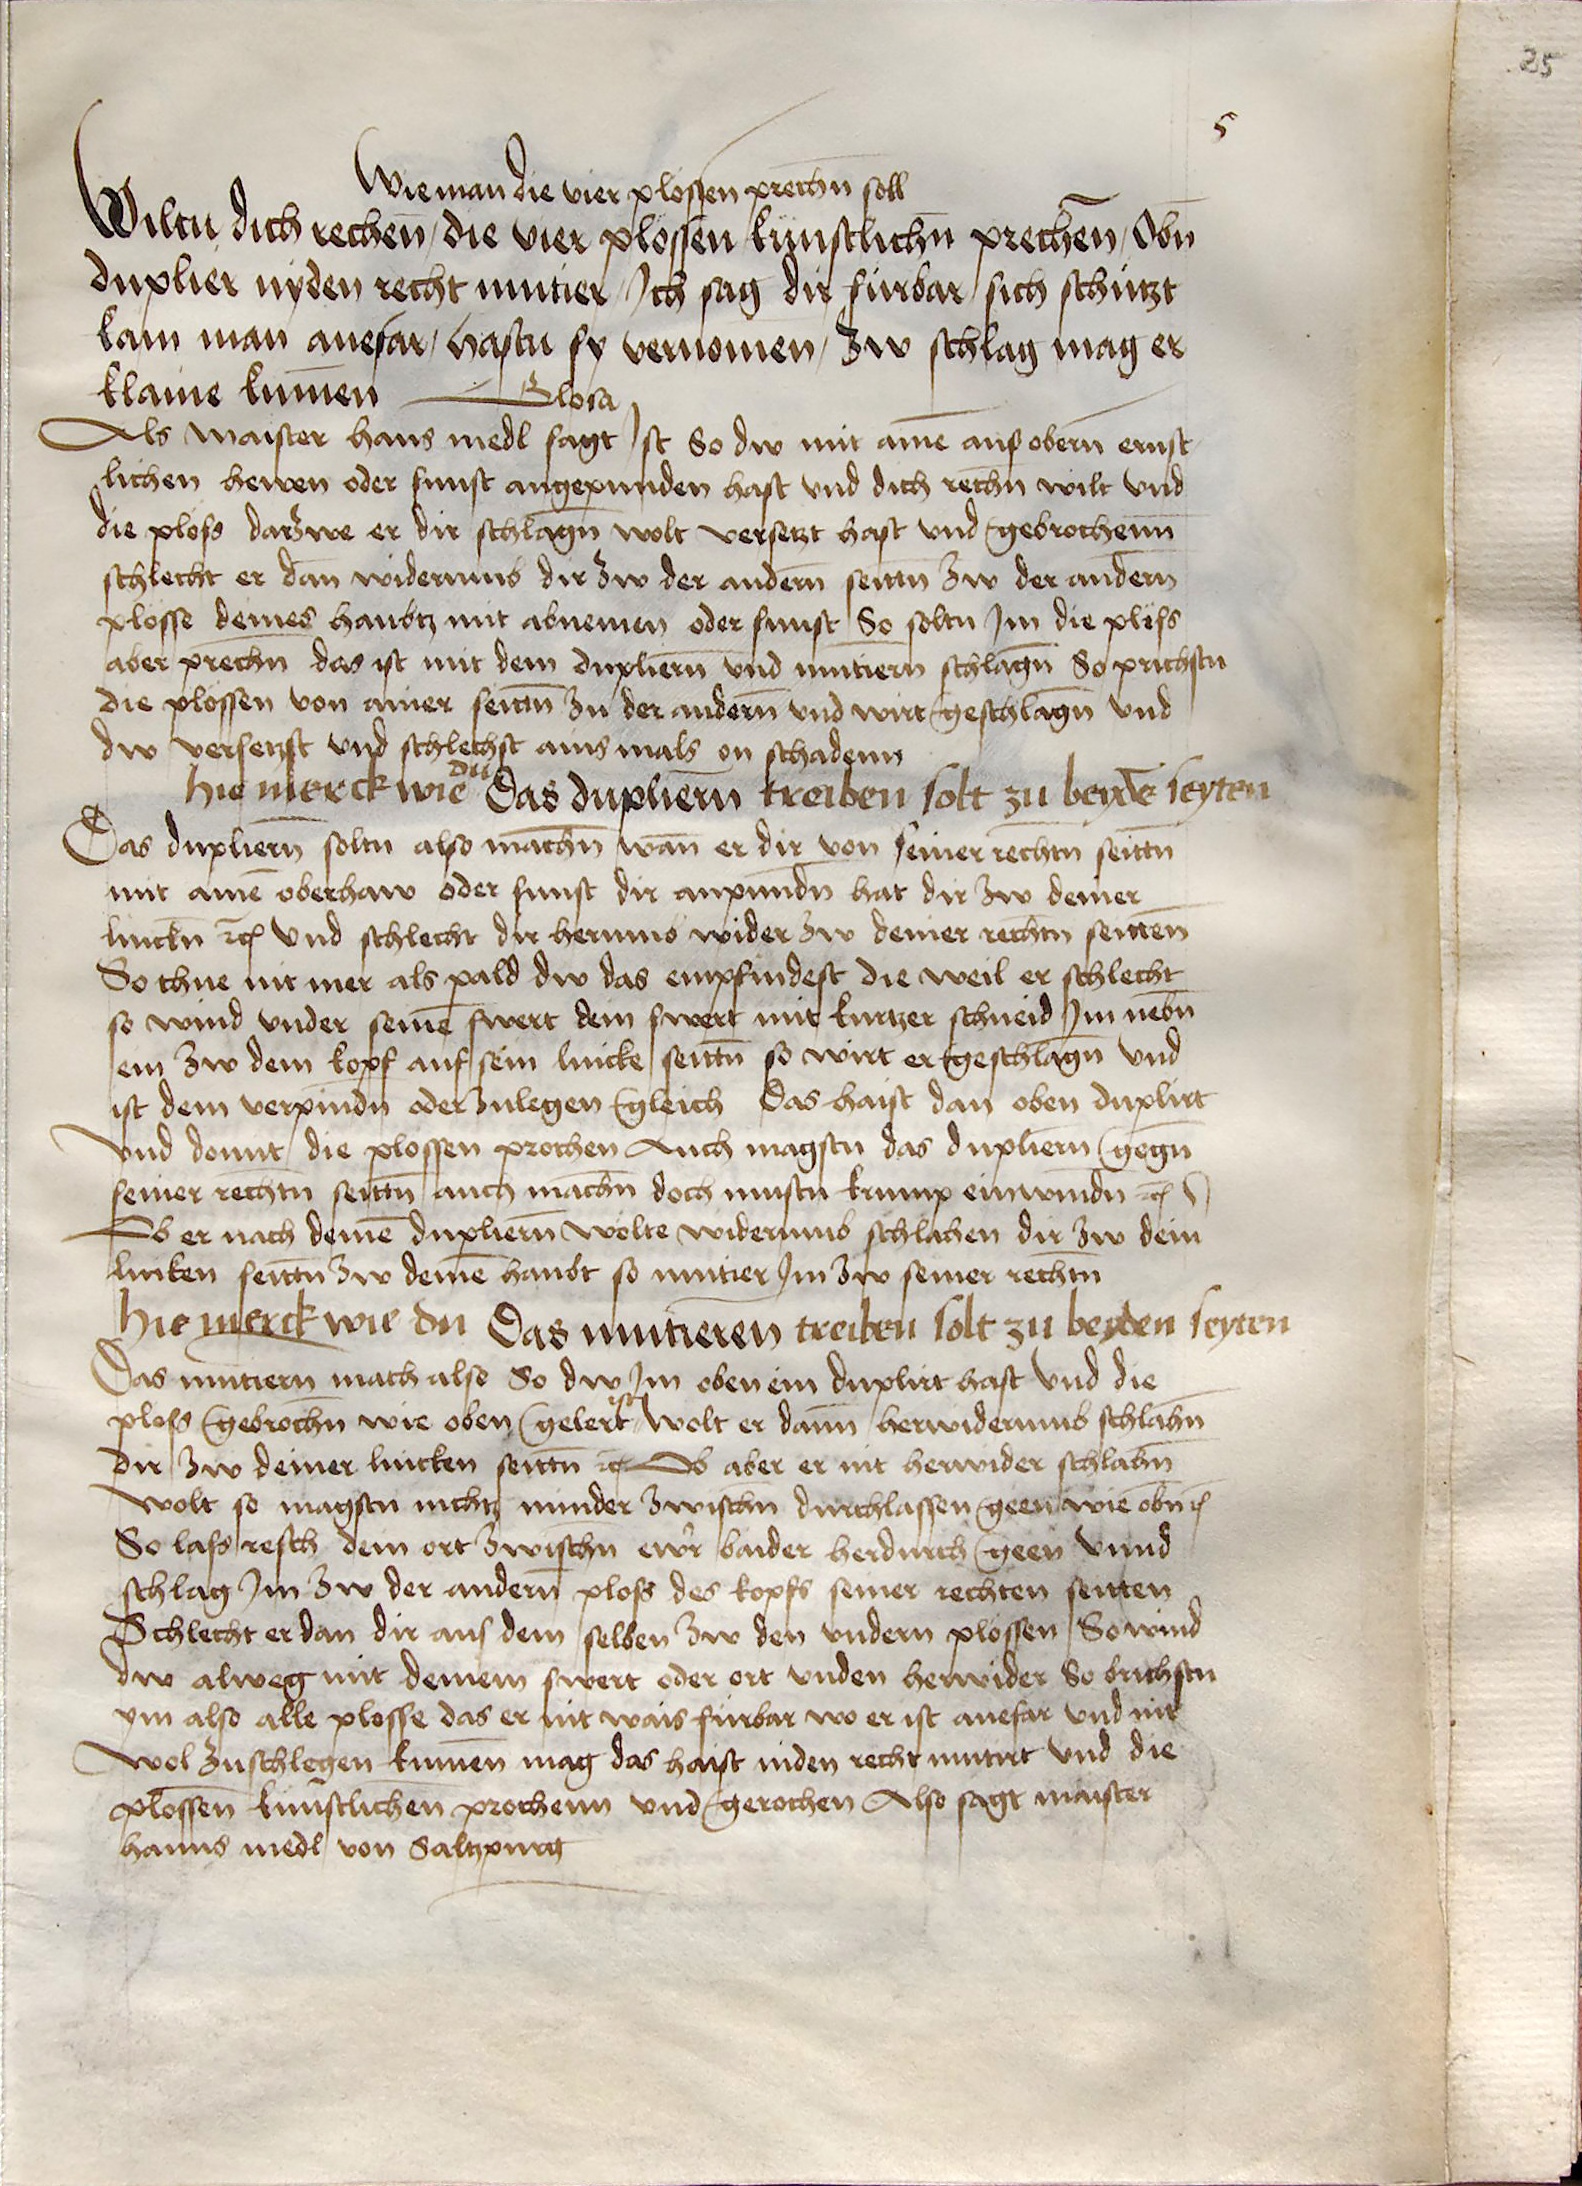 25
5
Wie man die vier plössen prechn̄ soll
Wiltu dich rechen̄ / die vier plössen künstlichn̄ prechen̄ / Obn̄
duplier nyden recht mutier / Ich sag dir fürbar / sich schützt
kain man anefar / hastu sy vernomen / Zw schlag mag er
klaine kumēn Glosa
Als maister hans medl sagt Ist So dw mit ainē auß obern ernst
lichen hewen oder sunst angepunden hast vnd dich rechn̄ wilt vnd
die plöss darzwe er dir schlagn̄ wolt versetzt hast vnd gebrochenn
schlecht er dan̄ widerumb dir Zw der andern̄ seittn̄ Zw der andern
plösse deines haubtz mit abnemen oder sunst So soltu Im die plöss
aber prechn̄ das ist mit dem dupliern̄ vnd mutiern schlagn̄ So prichstu
die plössen von ainer seittn̄ Zu der andern̄ vnd wirt geschlagn̄ vnd
dw versetzst vnd schlechst ains mals on schadenn
hie merck wie du Das dupliern̄ treiben solt zu beydē seyten
Das dupliern̄ soltu also machn̄ wan̄ er dir von seiner rechtn̄ seittn̄
mit ainē oberhaw oder sunst dir anpundn̄ hat dir Zw deiner
linckn̄ ꝛc Vnd schlecht dir herumb wider Zw deiner rechtn̄ seitten̄
So thue nit mer als pald dw das empfindest die weil er schlecht
so wind vnder seinē swert dein swert mit kurtzer schneid Im nebn̄
ein Zw dem kopf auf sein lincke seittn̄ so wirt er geschlagn̄ vnd
ist dem verpindn̄ oder Zulegen gleich Das haist dan oben duplirt
vnd domit die plossen prochen Auch magstu das dupliern gegn̄
seiner rechtn̄ seittn̄ auch machn̄ doch mustu krump einwindn̄ ꝛc
Ob er nach deinē dupliern̄ wolte widerumb schlahen dir Zw dein
lincken seittn̄ Zw deinē haubt so mutier Im Zw seiner rechtn̄
hie merck wie du Das mutieren treiben solt zu beyden seyten
Das mutiern mach also So dw Im oben ein duplirt hast Vnd die
ploss gebrochn̄ wie oben gelert ist Wolt er dann herwiderumb schlahn̄
dir Zw deiner lincken seittn̄ ꝛc Ob aber er nit herwider schlahn̄
wolt so magstu nichtz minder Zwischn̄ durchlassen geen wie obn̄ ꝛc
So lass resch dein ort Zwischn̄ ewr baider herdurch geen Vnnd
schlag Im Zw der andern̄ ploss des kopfs seiner rechten seitten
Schlecht er dan dir aus dem selben Zw den vndern plössen So wind
dw alweg mit deinem swert oder ort vnden herwider So brichstu
ym also alle plösse das er nit wais fürbar wo er ist anefar vnd nit
wol Zuschlegen kumen mag das haist niden recht mutirt vnd die
plossen̄ kunstlichen̄ prochenn vnd gerochen Also sagt maister
hanns medl von Saltzpurg